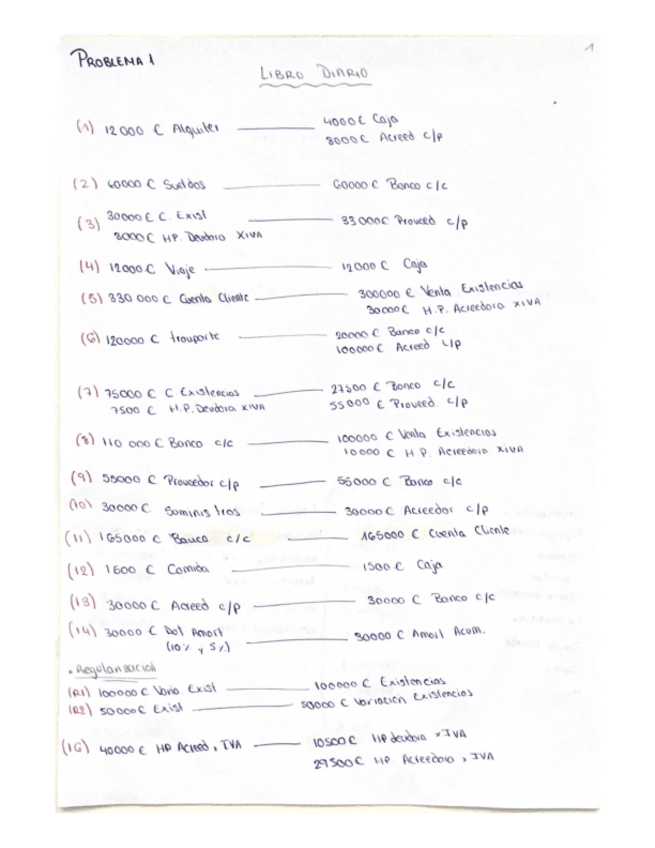 PROBLEMA 1
1
LIBRO DIARIO
(1) 12000 € Alquiler 4000€ Caja
8000€ Acreed c/p
(2) 60000 € Sueldos 60000 € Banco c/c
(3) 30000€ C. Exist 33000€ Proveed c/p
3000€ HP. Deudora xIVA
(4) 12000€ Viaje 12000€ Caja
(5) 330 000€ Cuenta Cliente 300000 € Venta Existencias
30000€ H.P. Acreedora xIVA
(6) 120000 € trasporte 20000€ Banco c/c
100000€ Acreed
(7) 75000 € C Existencias 27500 € Banco c/c
7500 € H.P. Deudora xIVA 55000 € Proveed. c/p
(8) 110 000€ Banco c/c 100000 € Venta Existencias
10000 € H P. Acreedora xIVA
(9) 55000€ Proveedor c/p 55000 € Banco c/c
(10) 30000€ Suministros 30000€ Acreedor c/p
(11) 165000 € Banco c/c 165000 € Cuenta Cliente
(12) 1500 € Comida 1500€ Caja
(13) 30000€ Acreed c/p 30000€ Banco c/c
(14) 30000€ Dot Amort 30000€ Amort Acum.
(10% y 5%)
• Regularización
(R1) 100000€ Varia. Exist 100000 € Existencias
(R2) 50000€ Exist 50000€ Variación Existencias
(16) 40000€ HP Acreed x IVA 10500€ HP deudora xIVA
29500€ HP Acreedora x IVA